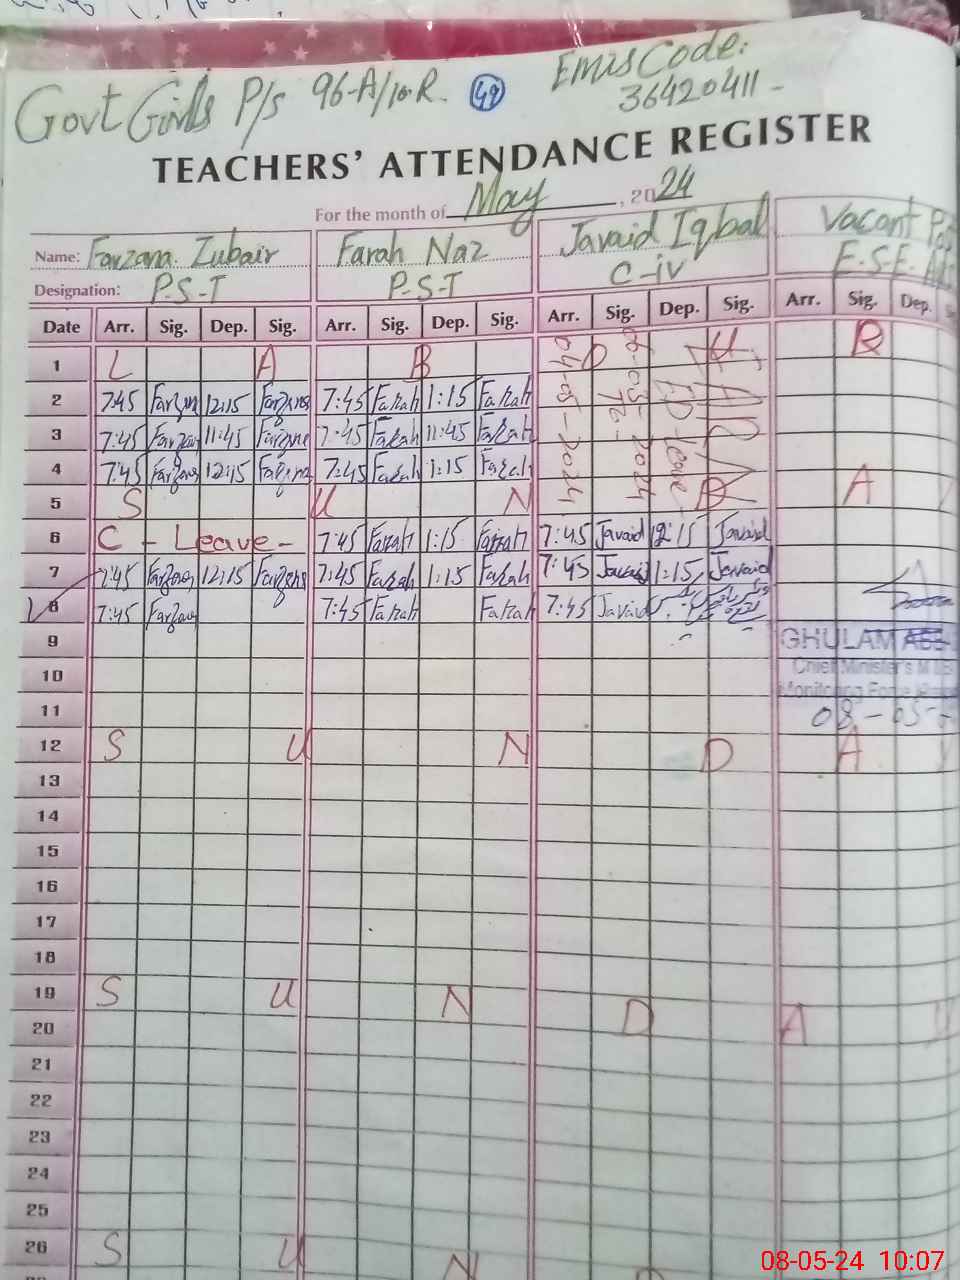 Govt Girls P/s 96-A/10R. 49 EMIS Code:
36420411 -
TEACHERS' ATTENDANCE REGISTER
For the month of May, 2024
Name: Farzana Zubair Farah Naz Javaid Iqbal Vacant
Designation: P-S-T P-S-T C-iv E.S.E.
Date Arr. Sig. Dep. Sig. Arr. Sig. Dep. Sig. Arr. Sig. Dep. Sig. Arr. Sig. Dep.
1 L A B O U R
2 7:45 Farzana 12:15 Farzana 7:45 Farah 1:15 Farah
3 7:45 Farzana 11:45 Farzana 7:45 Farah 11:45 Farah
4 7:45 Farzana 12:15 Farzana 7:45 Farah 1:15 Farah
04-05-2024
To
06-05-2024
5 S U N D A Y
6 C - Leave - 7:45 Farah 1:15 Farah 7:45 Javaid 12:15 Javaid
7 7:45 Farzana 12:15 Farzana 7:45 Farah 1:15 Farah 7:45 Javaid 1:15 Javaid
8 7:45 Farzana 7:45 Farah Farah 7:45 Javaid
9 GHULAM ABB
10 Chief Minister's M
11 Monitoring Force
08-05-
12 S U N D A Y
13
14
15
16
17
18
19 S U N D A Y
20
21
22
23
24
25
26 S U N D
08-05-24 10:07